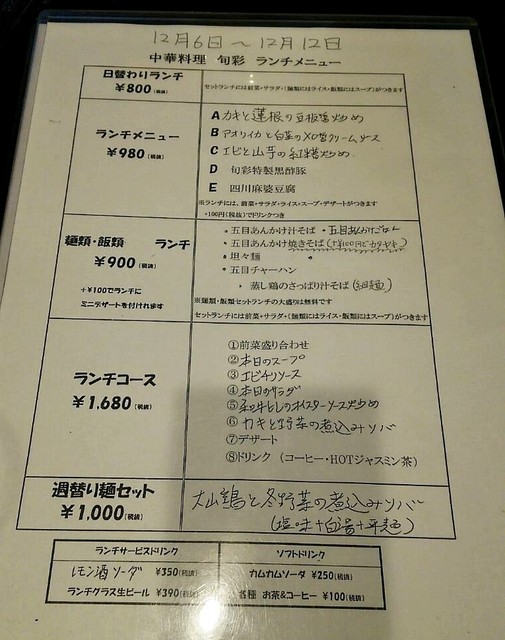 12月6日〜12月12日
中華料理 旬彩 ランチメニュー
日替わりランチ
¥800(税抜)
セットランチには前菜・サラダ・(麺類にはライス・飯類にはスープ)がつきます
ランチメニュー
¥980(税抜)
A カキと蓮根の豆板醤炒め
B アオリイカと白菜のXO醤クリームソース
C エビと山芋の紅糟炒め
D 旬彩特製黒酢豚
E 四川麻婆豆腐
※ランチには、前菜・サラダ・ライス・スープ・デザートがつきます
+100円(税抜)でドリンクつき
麺類・飯類 ランチ
¥900(税抜)
+¥100でランチに
ミニデザートを付けれます
・五目あんかけ汁そば ・五目あんかけごはん
・五目あんかけ焼きそば(+¥100円でカタヤキ)
・坦々麺
・五目チャーハン
・蒸し鶏のさっぱり汁そば(細麺)
※麺類・飯類セットランチの大盛りは無料です
セットランチには前菜+サラダ+(麺類にはライス・飯類にはスープ)がつきます
ランチコース
¥1,680(税抜)
①前菜盛り合わせ
②本日のスープ
③エビチリソース
④本日のサラダ
⑤和牛とのオイスターソース炒め
⑥カキと野菜の煮込みソバ
⑦デザート
⑧ドリンク (コーヒー・HOTジャスミン茶)
週替り麺セット
¥1,000(税抜)
大山鶏と冬野菜の煮込みソバ
(塩味+白湯+平麺)
ランチサービスドリンク
レモン酒ソーダ ¥350(税抜)
ランチグラス生ビール ¥390(税抜)
ソフトドリンク
カムカムソーダ ¥250(税抜)
各種 お茶&コーヒー ¥100(税抜)